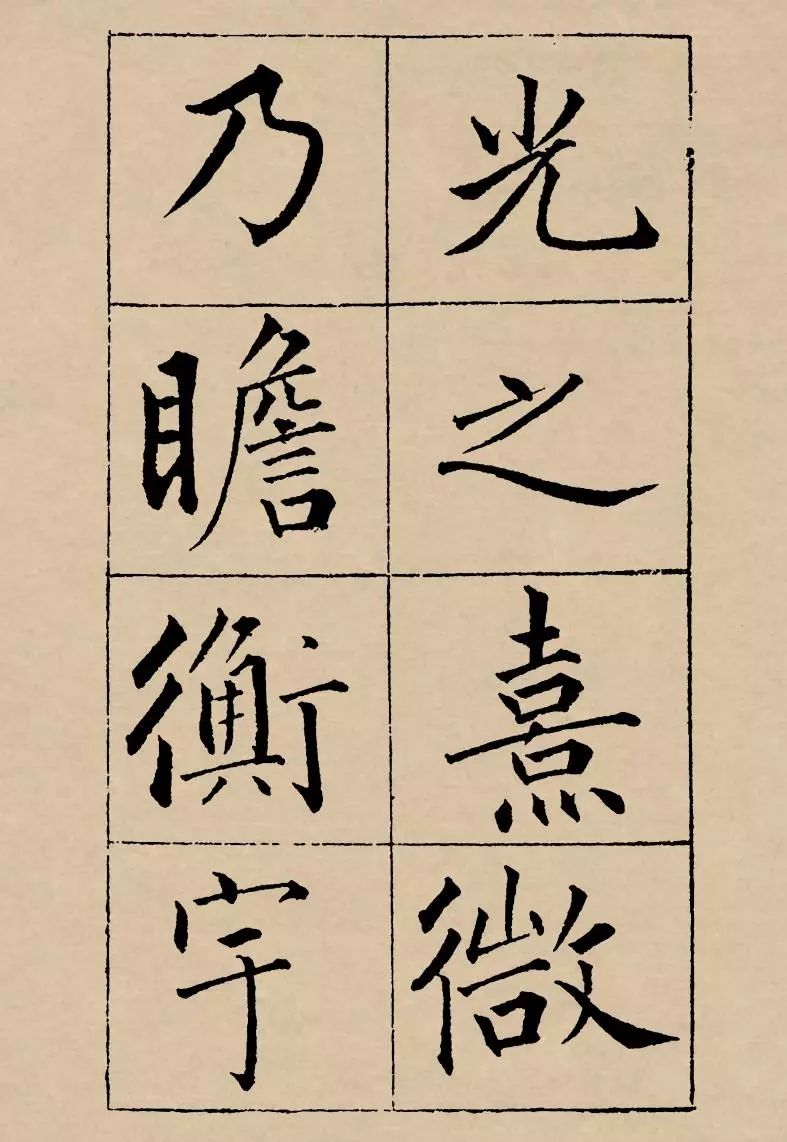 光之熹微
乃瞻衡宇